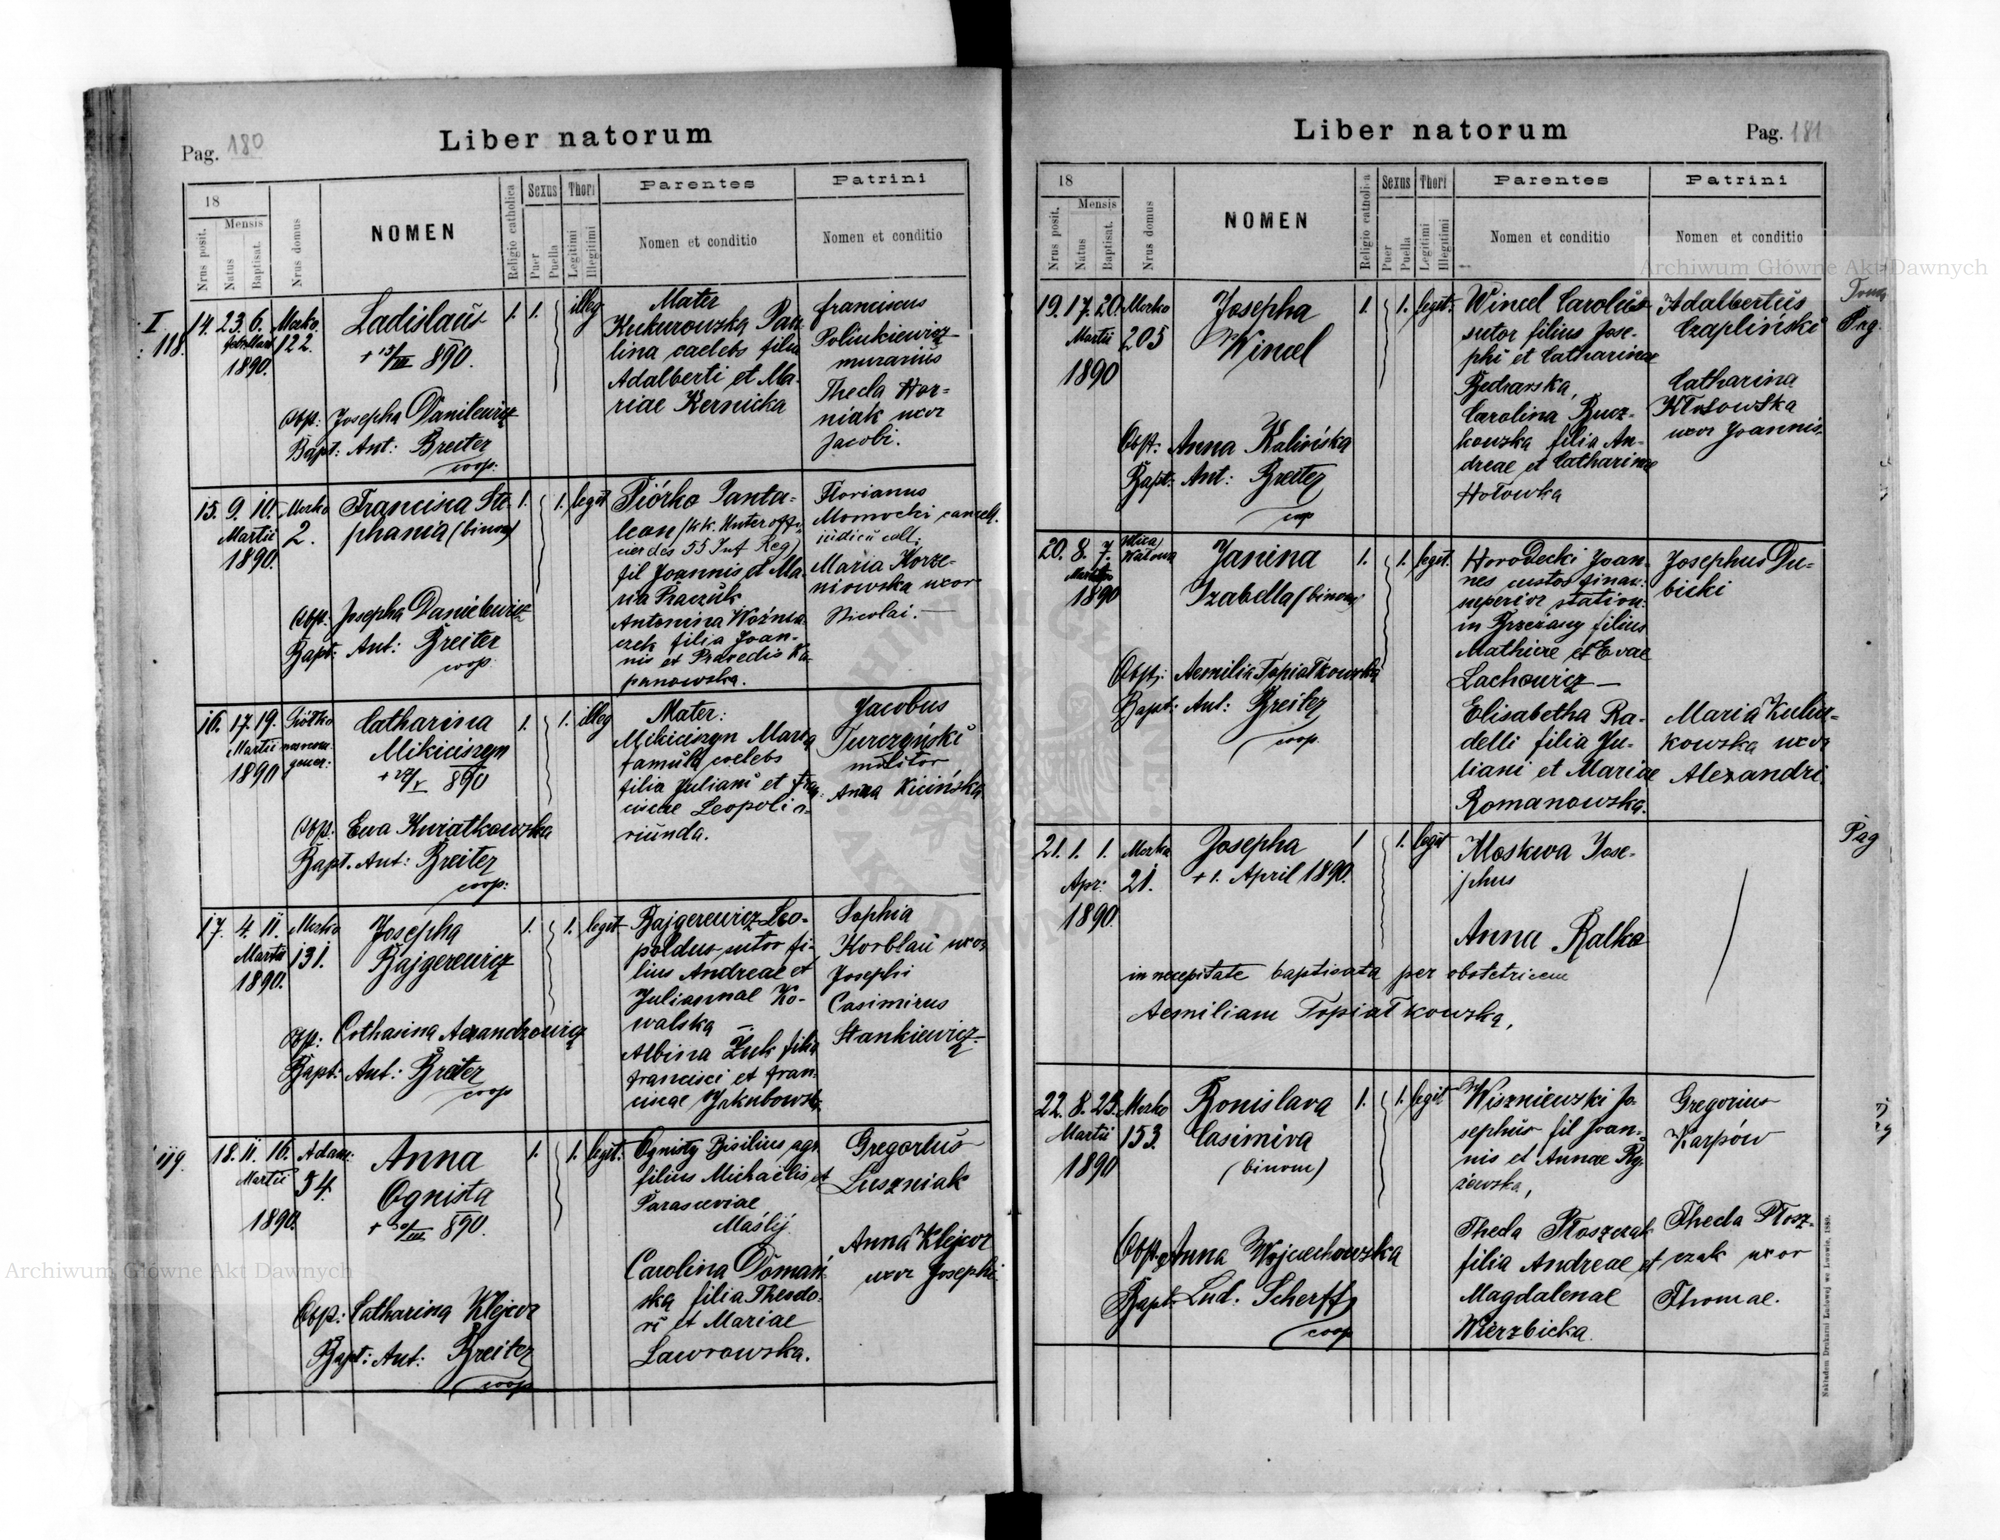 Pag. 180
Liber natorum
18
Mensis
Nrus posit.
Natus
Baptisat.
Nrus domus
NOMEN
Religio catholica
Sexus
Puer
Puella
Thori
Legitimi
Illegitimi
Parentes
Nomen et conditio
Patrini
Nomen et conditio
I
118.
14. 23. 6.
1890.
122.
Ladislaus
890.
Obst: Josepha Danilewicz
Bapt: Ant: Breiter
coop:
1. 1. illeg
Mater
Kukurowska Pau-
lina caelebs filia
Adalberti et Ma-
riae Kernicka
Franciscus
Poliukiewicz
murarius
Thecla Hor-
niak uxor
Jacobi.
15. 9. 10.
Martii
1890.
2.
Francisca Ste-
phania (binom)
Obst: Josepha Danielewicz
Bapt: Ant: Breiter
coop.
1. 1. legit
Piórko Panta-
leon (k.k. Unteroffi-
cier des 55 Inf. Reg)
fil Joannis et Ma-
ria
Antonina Woźnia-
czek filia Joan-
nis et Praxedis Ka-
panowska.
Florianus
Momocki cancell.
Maria Korze-
niowska uxor
Nicolai.
16. 17. 19.
Martii
1890
Catharina
Mikiciszyn
890
Obst: Ewa Kwiatkowska
Bapt. Ant: Breiter
coop:
1. 1. illeg
Mater:
Mikiciszyn Maria
famula coelebs
filia Juliani et Fran-
ciscae Leopoli o-
riunda.
Jacobus
Turczyński
molitor
Anna Kicińska
17. 4. 11.
Martii
1890.
131.
Josepha
Bajgerewicz
Obst: Catharina Alexandrowicz
Bapt: Ant: Breiter
coop
1. 1. legit
Bajgerewicz Leo-
poldus sutor fi-
lius Andreae et
Juliannae Ko-
walska —
Albina Żuk filia
Francisci et Fran-
ciscae Jakubowska
Sophia
Korblau uxor
Josephi
Casimirus
Stankiewicz
119.
18. 11. 16.
Martii
1890.
Adam:
54.
Anna
Ognista
890.
Obst: Catharina Klejcor
Bapt: Ant: Breiter
coop
1. 1. legit.
Ognisty Basilius agr.
filius Michaelis et
Parasceviae
Maślij
Carolina Domań-
ska filia Theodo-
ri et Mariae
Lawrowska.
Gregorius
Luszniak
Anna Klejcor
uxor Josephi
Liber natorum
Pag. 181
18
Mensis
Nrus posit.
Natus
Baptisat.
Nrus domus
NOMEN
Religio catholica
Sexus
Puer
Puella
Thori
Legitimi
Illegitimi
Parentes
Nomen et conditio
Patrini
Nomen et conditio
19. 17. 20.
Martii
1890
205
Josepha
Wincel
Obst: Anna Kalińska
Bapt: Ant: Breiter
coop
1. 1. legit.
Wincel Carolus
sutor filius Jose-
phi et Catharinae
Bednarska,
Carolina Bucz-
kowska filia An-
dreae et Catharinae
Hołowka
Adalbertus
Czapliński
Catharina
Kłosowska
uxor Joannis.
Pag.
20. 8. 7.
1890
Ulica
Janina
Izabella (binom)
Obst: Aemilia Topiatkowska
Bapt: Ant: Breiter
coop.
1. 1. legit.
Horodecki Joan-
nes custos finan:
superior station:
in Brzeżany filius
Mathiae et Evae
Lachowicz —
Elisabetha Ra-
delli filia Ju-
liani et Mariae
Romanowska.
Josephus Du-
bicki
Maria Kuli-
kowska uxor
Alexandri.
21. 1. 1.
Apr:
1890
21.
Josepha
+ 1. April 1890.
1 1. legit
Moskwa Jose-
phus
Anna Ralka
in necessitate baptisata per obstetricem
Aemiliam Topiatkowską,
Pag
22. 8. 23.
Martii
1890
153.
Bronislava
Casimira
(binom)
Obst: Anna Wojciechowska
Bapt: Lud. Scherff
coop
1. 1. legit
Wiszniewski Jo-
sephus fil Joan-
nis et Annae Ry-
żewska,
Thecla Ptoszczak
filia Andreae et
Magdalenae
Wierzbicka.
Gregorius
Karpów
Thecla Ptosz-
czak uxor
Thomae.
Nakładem Drukarni Ludowej we Lwowie, 1889.
Archiwum Główne Akt Dawnych
Archiwum Główne Akt Dawnych